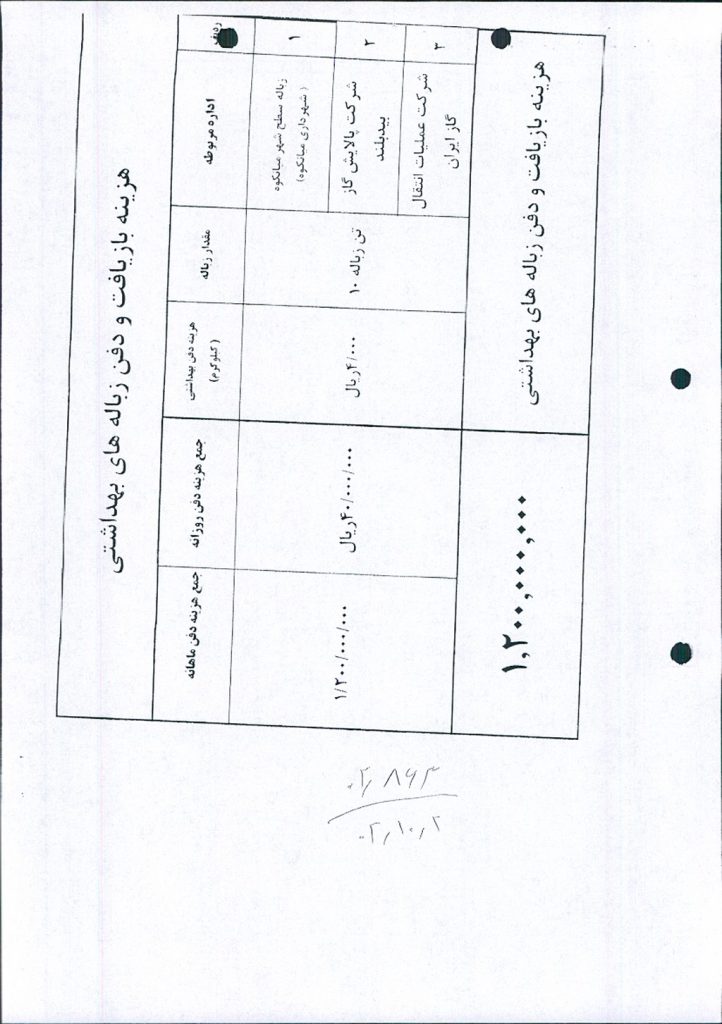 هزینه بازیافت و دفن زباله های بهداشتی
ردیف
اداره مربوطه
مقدار زباله
هزینه دفن بهداشتی
(کیلوگرم)
جمع هزینه دفن روزانه
جمع هزینه دفن ماهانه
۱
زباله سطح شهر میانکوه
(شهرداری میانکوه)
۲
شرکت پالایش گاز
بیدبلند
۳
شرکت عملیات انتقال
گاز ایران
۱۰ تن زباله
۴/۰۰۰ریال
۴۰/۰۰۰/۰۰۰ریال
۱/۲۰۰/۰۰۰/۰۰۰
هزینه بازیافت و دفن زباله های بهداشتی
۱,۲۰۰,۰۰۰,۰۰۰
۰۲٫۸۶۳
۰۲٫۱۰٫۲